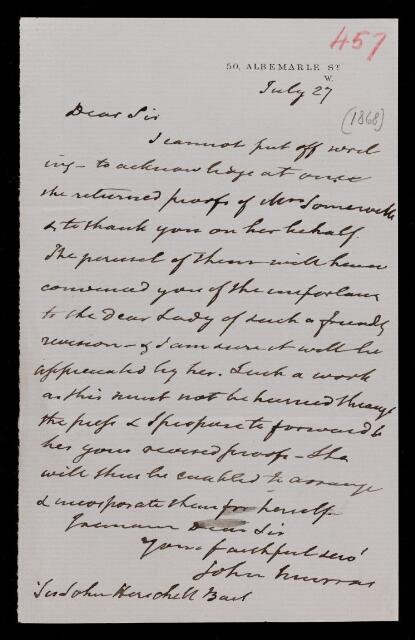 457
50, ALBEMARLE ST.
W.
July 27
(1868)
Dear Sir
I cannot put off writ
ing - to acknowledge at once
the returned proofs of Mrs Somerville
& to thank you on her behalf.
The perusal of them will have
convinced you of the importance
to the dear Lady of such a friendly
revision - & I am sure it will be
appreciated by her. Such a work
as this must not be hurried through
the press & I propose to forward to
her your revised proofs - She
will thus be enabled to arrange
& incorporate them for herself
I remain Dear Sir
Your faithful serv't
John Murray
Sir John Herschell Bart